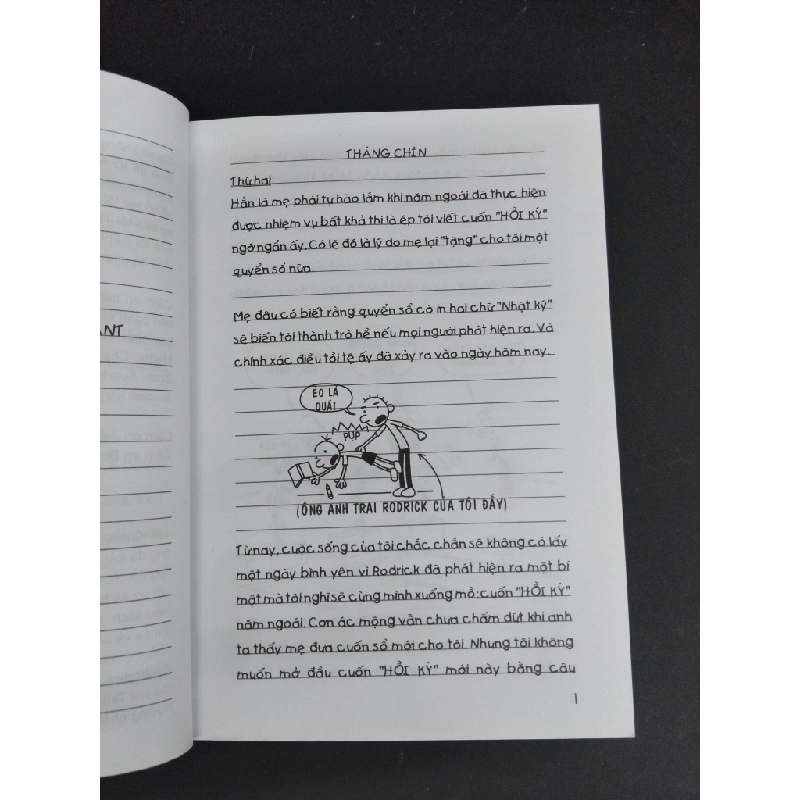 THÁNG CHÍN
Thứ hai
Hẳn là mẹ phải tự hào lắm khi năm ngoái đã thực hiện
được nhiệm vụ bất khả thi là ép tôi viết cuốn "HỒI KÝ"
ngớ ngẩn ấy. Có lẽ đó là lý do mẹ lại "tặng" cho tôi một
quyển sổ nữa.
Mẹ đâu có biết rằng quyển sổ có in hai chữ "Nhật ký"
sẽ biến tôi thành trò hề nếu mọi người phát hiện ra. Và
chính xác điều tồi tệ ấy đã xảy ra vào ngày hôm nay...
EO LÀ
QUÁI
PỤP
(ÔNG ANH TRAI RODRICK CỦA TÔI ĐẤY)
Từ nay, cuộc sống của tôi chắc chắn sẽ không có lấy
một ngày bình yên vì Rodrick đã phát hiện ra một bí
mật mà tôi nghĩ sẽ cùng mình xuống mồ: cuốn "HỒI KÝ"
năm ngoái. Cơn ác mộng vẫn chưa chấm dứt khi anh
ta thấy mẹ đưa cuốn sổ mới cho tôi. Nhưng tôi không
muốn mở đầu cuốn "HỒI KÝ" mới này bằng câu
1
ANT